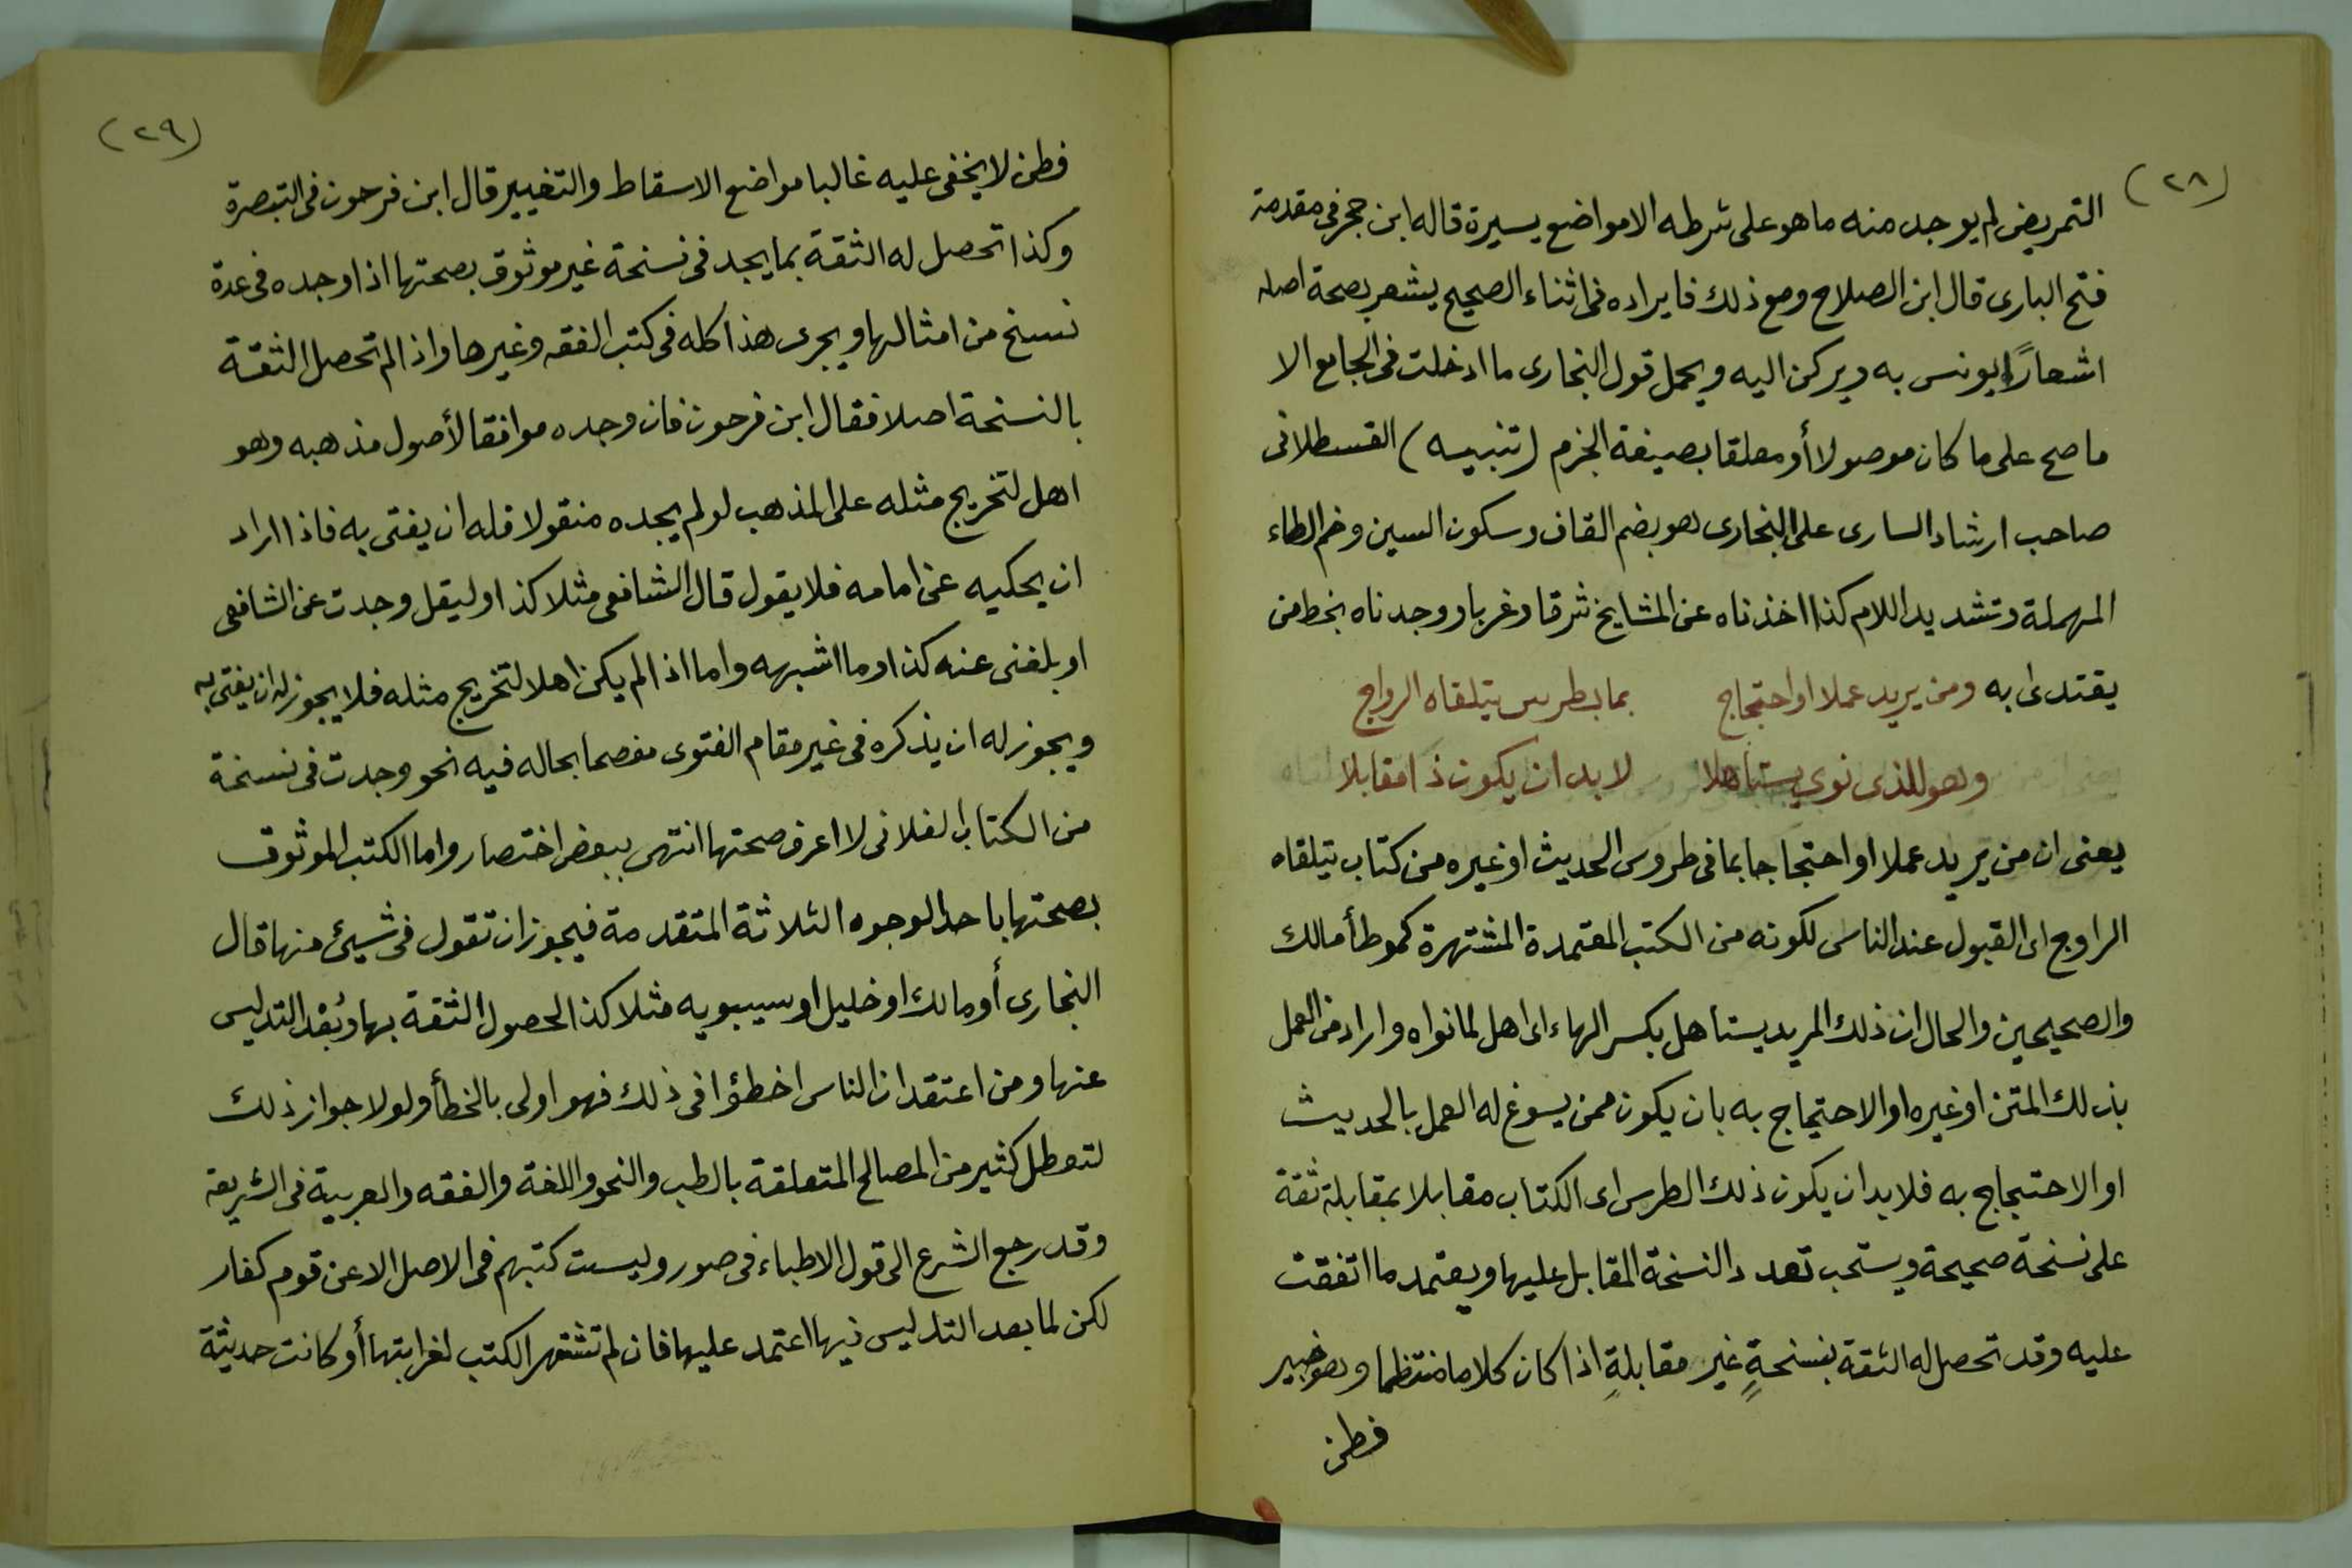 (٢٨)
التمريض لم يوجد منه ما هو على شرطه الا مواضع يسيرة قاله ابن حجر في مقدمة
فتح البارى قال ابن الصلاح ومع ذلك فايراده فى اثناء الصحيح يشعر بصحة اصله
اشعارًا يونس به ويركن اليه ويحمل قول البخارى ما ادخلت فى الجامع الا
ما صح على ما كان موصولا أو معلقا بصيغة الجزم (تنبيه) القسطلانى
صاحب ارشاد السارى على البخارى هو بضم القاف وسكون السين وضم الطاء
المهملة وتشديد اللام كذا اخذناه عن المشايخ شرقا وغربا ووجدناه بخط من
يقتدى به ومن يريد عملا او احتجاج بما بطرس يتلقاه الرواج
وهو للذى نوى يستاهلا لا بد ان يكون ذا مقابلا
يعنى ان من يريد عملا او احتجاجا بما فى طروس الحديث او غيره من كتاب يتلقاه
الرواج اى القبول عند الناس لكونه من الكتب المعتمدة المشتهرة كموطأ مالك
والصحيحين والحال ان ذلك المريد يستاهل بكسر الهاء اى اهل لما نواه واراد من العمل
بذلك المتن او غيره او الاحتجاج به بان يكون ممن يسوغ له العمل بالحديث
او الاحتجاج به فلا بد ان يكون ذلك الطرس اى الكتاب مقابلا بمقابلة ثقة
على نسخة صحيحة ويستحب تعدد النسخة المقابل عليها ويعتمد ما اتفقت
عليه وقد تحصل له الثقة بنسخةٍ غير مقابلةٍ اذا كان كلاما منتظما وهو خبير
فطن
(٢٩)
فطن لا يخفى عليه غالبا مواضع الاسقاط والتغيير قال ابن فرحون فى التبصرة
وكذا تحصل له الثقة بما يجد فى نسخة غير موثوق بصحتها اذا وجده فى عدة
نسخ من امثالها ويجرى هذا كله فى كتب الفقه وغيرها واذا لم تحصل الثقة
بالنسخة اصلا فقال ابن فرحون فان وجده موافقا لأصول مذهبه وهو
اهل لتخريج مثله على المذهب لو لم يجده منقولا فله ان يفتى به فاذا اراد
ان يحكيه عن امامه فلا يقول قال الشافعى مثلا كذا وليقل وجدت عن الشافعى
او بلغنى عنه كذا وما اشبهه واما اذا لم يكن اهلا لتخريج مثله فلا يجوز له ان يفتى به
ويجوز له ان يذكره فى غير مقام الفتوى مفصحا بحاله فيه نحو وجدت فى نسخة
من الكتاب الفلانى لا اعرف صحتها انتهى ببعض اختصار واما الكتب الموثوق
بصحتها باحد الوجوه الثلاثة المتقدمة فيجوز ان تقول فى شيئ منها قال
البخارى أو مالك او خليل او سيبويه مثلا كذا لحصول الثقة بها وبُعْد التدليس
عنها ومن اعتقد ان الناس اخطؤا فى ذلك فهو اولى بالخطأ ولولا جواز ذلك
لتعطل كثير من المصالح المتعلقة بالطب والنحو واللغة والفقه والعربية فى الشريعة
وقد رجع الشرع الى قول الاطباء فى صور وليست كتبهم فى الاصل الا عن قوم كفار
لكن لما بعد التدليس فيها اعتمد عليها فان لم تشتهر الكتب لغرابتها أو كانت حديثة